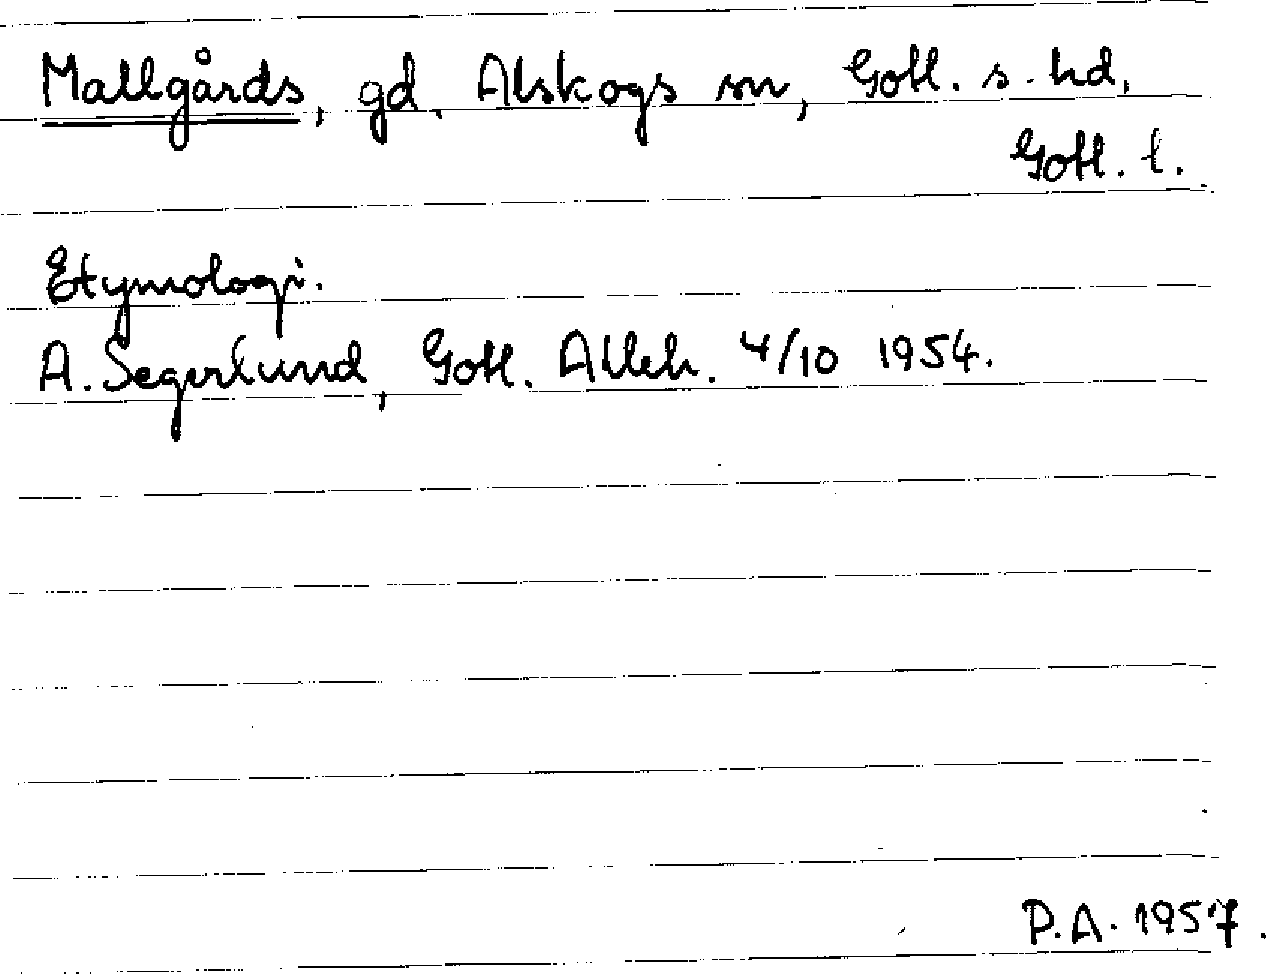 Mallgårds, gd, Alskogs sn, Gotl. s. hd,
Gotl. l.
Etymologi.
A. Segerlund, Gotl. Alleh. 4/10 1954.
P.A. 1957.